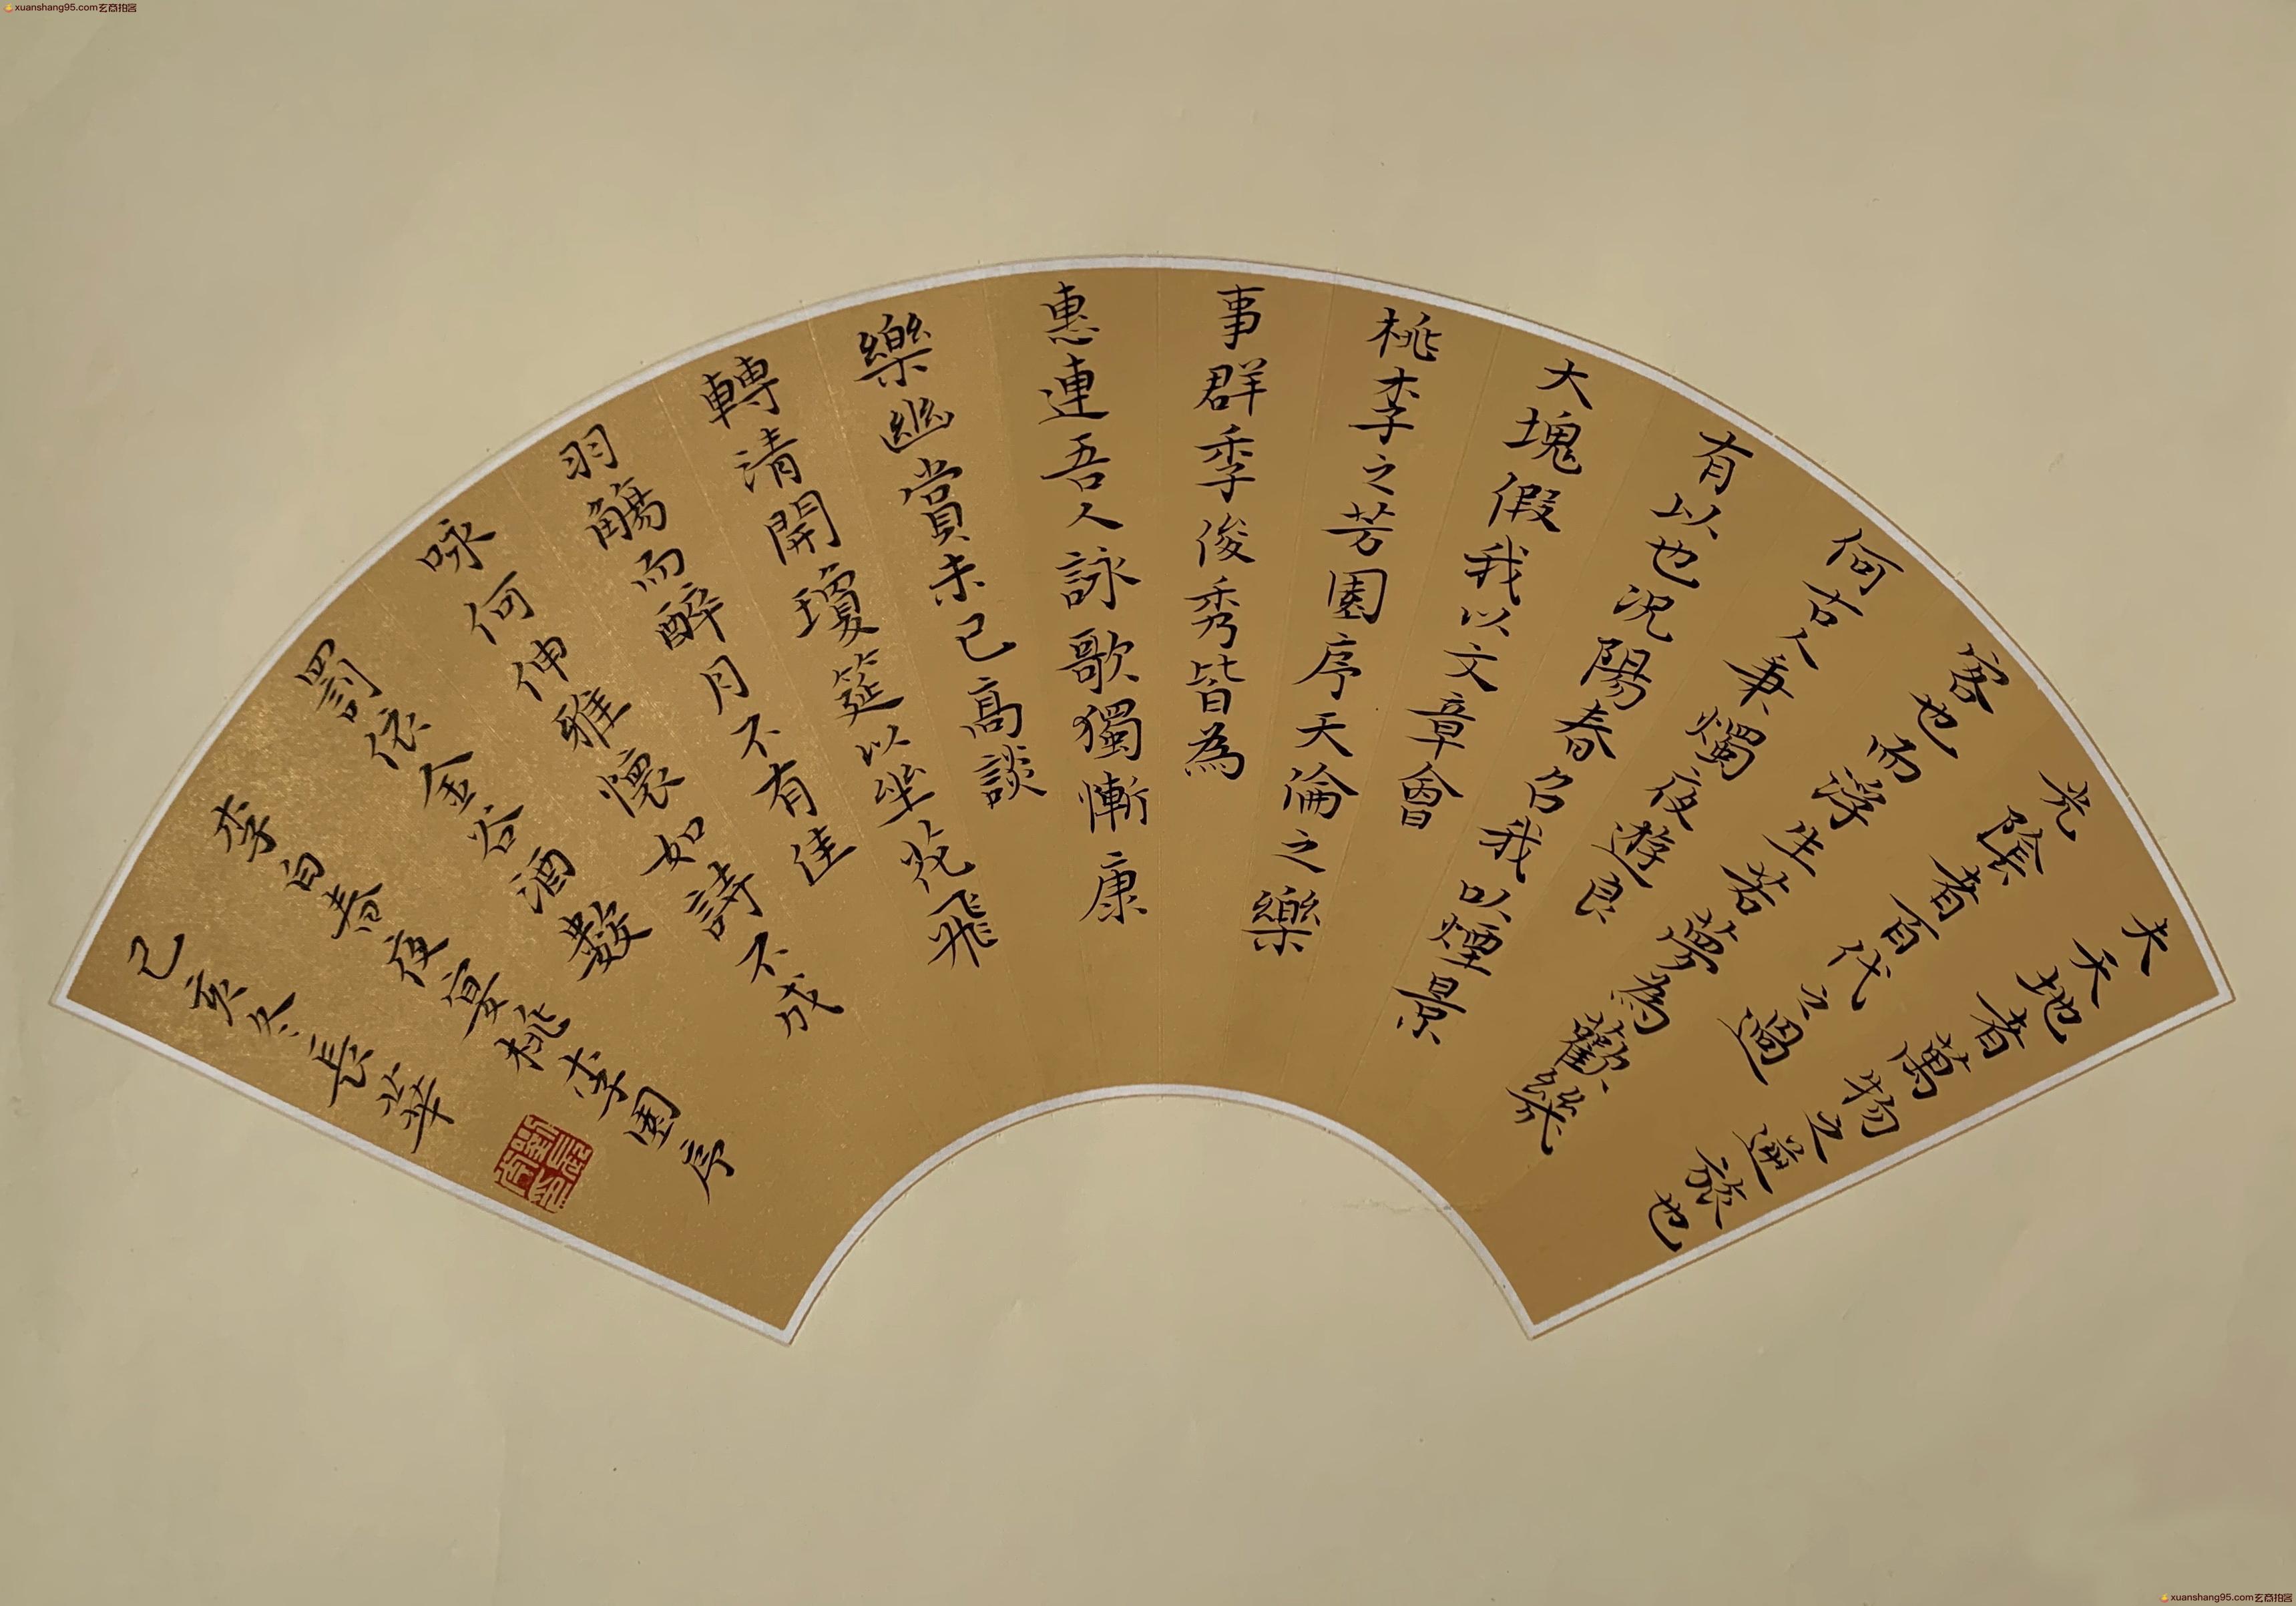 xuanshang95.com玄商拍客
夫天地者萬物之逆旅也
光陰者百代之過
客也而浮生若夢為歡幾
何古人秉燭夜遊良
有以也況陽春召我以煙景
大塊假我以文章會
桃李之芳園序天倫之樂
事群季俊秀皆為
惠連吾人詠歌獨慚康
樂幽賞未已高談
轉清開瓊筵以坐花飛
羽觴而醉月不有佳
咏何伸雅懷如詩不成
罰依金谷酒數
李白春夜宴桃李園序
己亥冬長華
xuanshang95.com玄商拍客